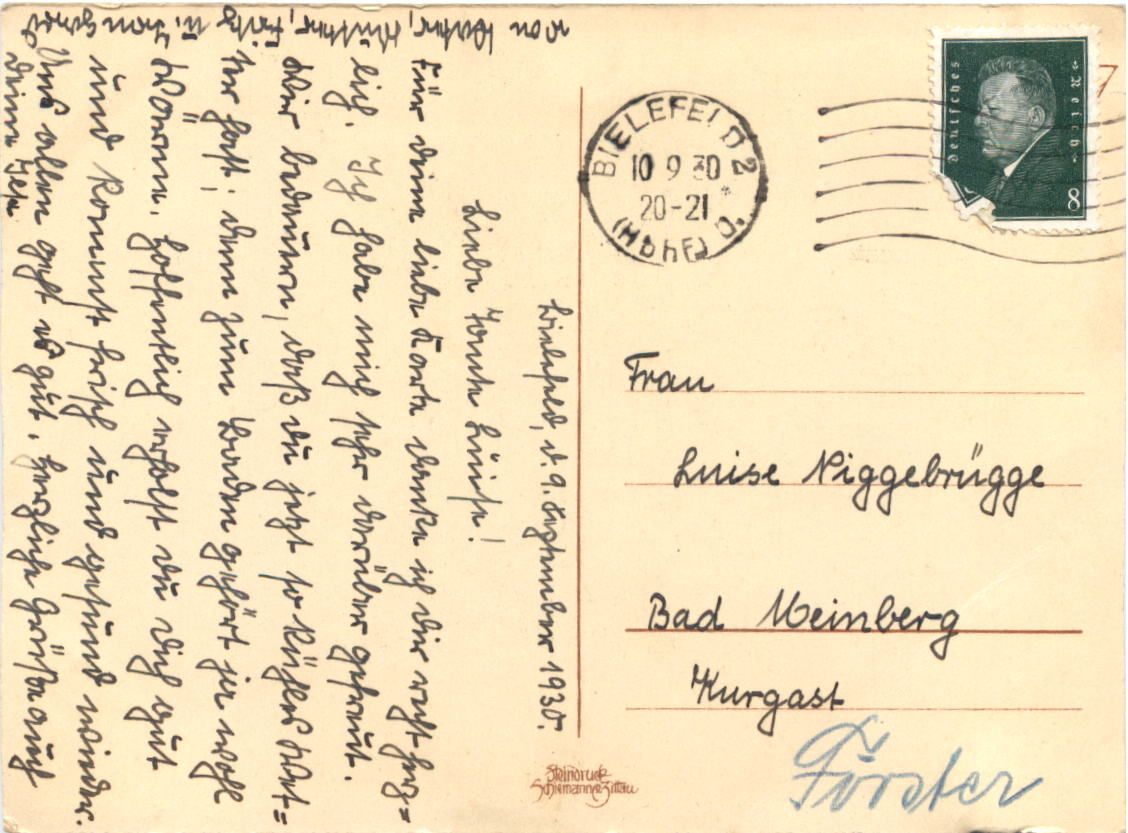 Bielefeld, d. 9. September 1930.
Liebe Tante Luise!
Für deine liebe Karte danke ich dir recht herz=
lich. Ich habe mich sehr darüber gefreut.
Wir bedauern, daß du jetzt so kühles Wet=
ter hast; denn zum Baden gehört ja wohl
Wärme. Hoffentlich erholst du dich gut
und kommst frisch und gesund wieder.
Uns allen geht es gut. Herzliche Grüße auch
von Vater, Mutter, Fritz u.
deine
BIELEFELD 2
10 9 30
20-21
(Hbhf)
Deutsches Reich
8
7
Frau
Luise Niggebrügge
Bad Meinberg
Kurgast
Förster
Steindruck
Schiemann & Zittau